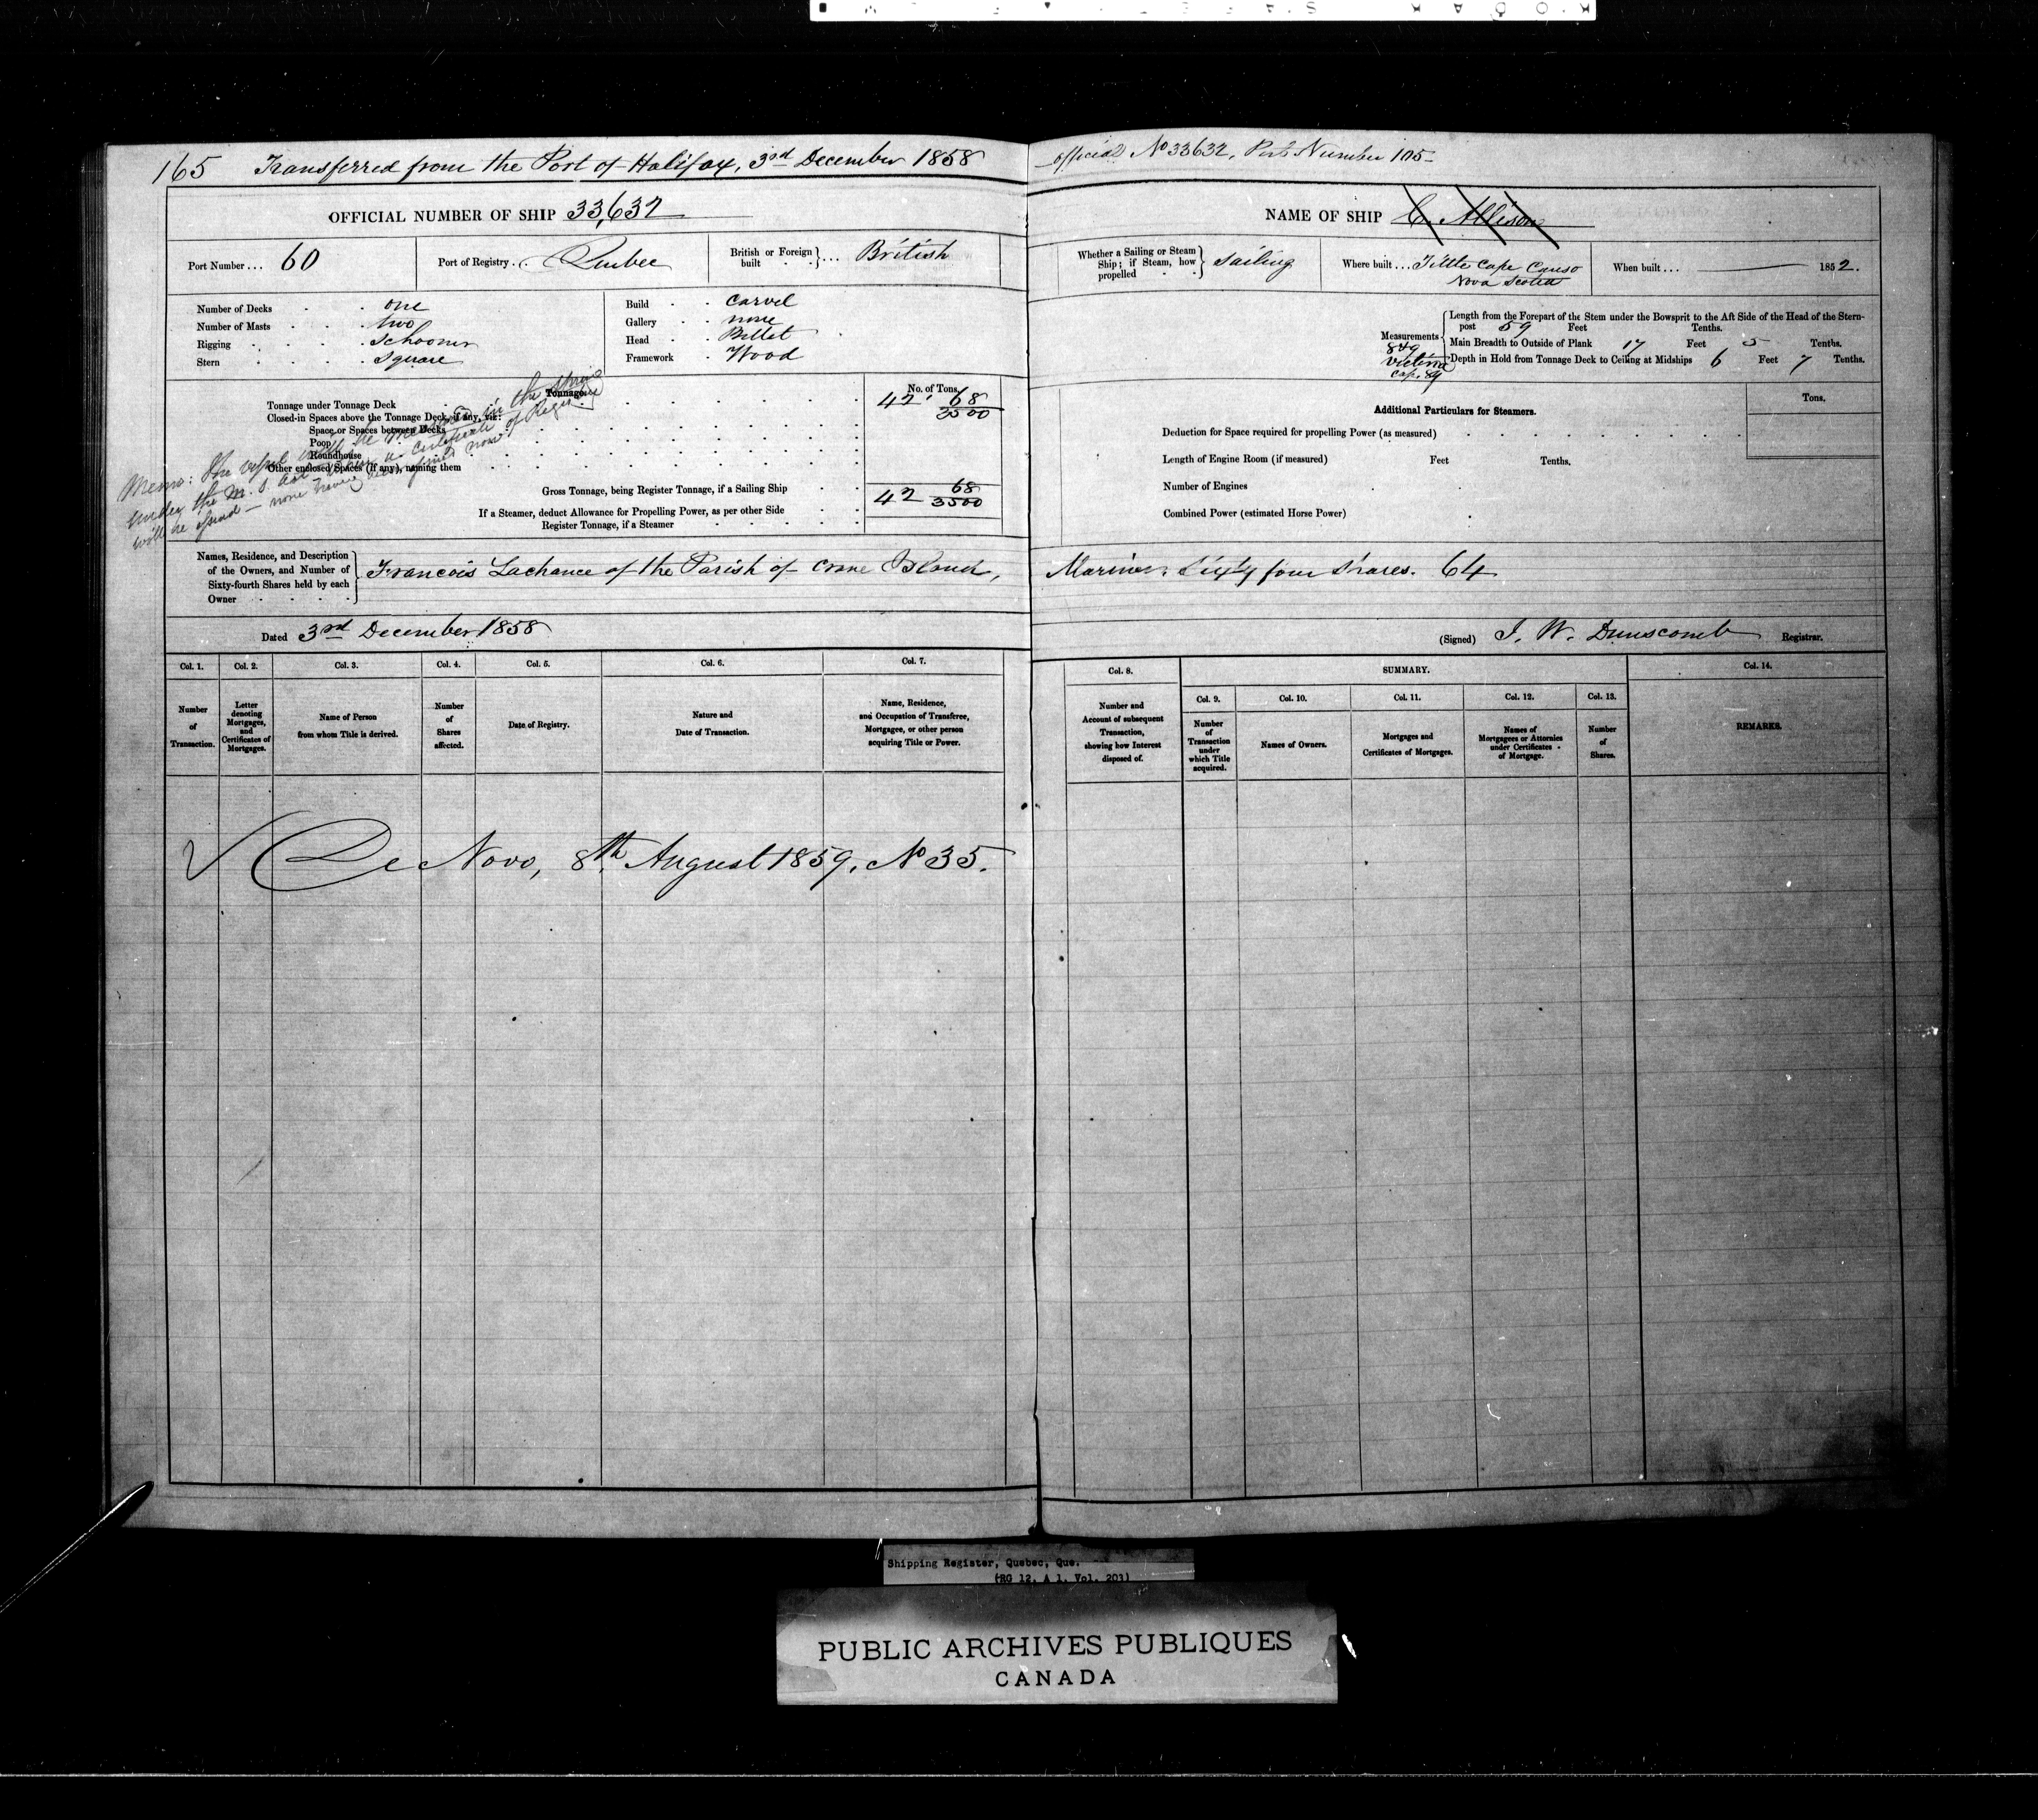 165 Transferred from the Port of Halifax, 3rd December 1858 official No 33632, Port Number 105
OFFICIAL NUMBER OF SHIP 33,632
Port Number ... 60
Port of Registry . Quebec
British or Foreign built } ... British
Number of Decks . . one
Number of Masts . . two
Rigging . . Schooner
Stern . . Square
Build . . Carvel
Gallery . . none
Head . . Billet
Framework . Wood
Tonnage.
No. of Tons.
Tonnage under Tonnage Deck 42 68/3500
Closed-in Spaces above the Tonnage Deck, if any, viz:
Space or Spaces between Decks
Poop
Roundhouse
Other enclosed Spaces (if any), naming them
Gross Tonnage, being Register Tonnage, if a Sailing Ship 42 68/3500
If a Steamer, deduct Allowance for Propelling Power, as per other Side
Register Tonnage, if a Steamer
Memo: The vessel will be measured in the Spring
under the M. S. Act when a Certificate of Registry
will be issued — none having been granted now
NAME OF SHIP C. Allison
Whether a Sailing or Steam Ship; if Steam, how propelled } Sailing
Where built ... Little Cape Canso
Nova Scotia
When built ... 1852.
Measurements
Length from the Forepart of the Stem under the Bowsprit to the Aft Side of the Head of the Stern-
post 59 Feet Tenths.
Main Breadth to Outside of Plank 17 Feet 5 Tenths.
Depth in Hold from Tonnage Deck to Ceiling at Midships 6 Feet 7 Tenths.
849
Victoria
Cap. 89
Additional Particulars for Steamers.
Tons.
Deduction for Space required for propelling Power (as measured)
Length of Engine Room (if measured) Feet Tenths.
Number of Engines
Combined Power (estimated Horse Power)
Names, Residence, and Description
of the Owners, and Number of
Sixty-fourth Shares held by each
Owner
Francois Lachance of the Parish of Crane Island, Mariner. Sixty four Shares. 64
Dated 3rd December 1858
(Signed) J. W. Dunscomb Registrar.
Col. 1. Col. 2. Col. 3. Col. 4. Col. 5. Col. 6. Col. 7. Col. 8. SUMMARY. Col. 14.
Col. 9. Col. 10. Col. 11. Col. 12. Col. 13.
Number of Transaction.
Letter denoting Mortgages, and Certificates of Mortgages.
Name of Person from whom Title is derived.
Number of Shares affected.
Date of Registry.
Nature and Date of Transaction.
Name, Residence, and Occupation of Transferee, Mortgagee, or other person acquiring Title or Power.
Number and Account of subsequent Transaction, showing how Interest disposed of.
Number of Transaction under which Title acquired.
Names of Owners.
Mortgages and Certificates of Mortgages.
Names of Mortgagees or Attornies under Certificates of Mortgage.
Number of Shares.
REMARKS.
De Novo, 8th August 1859, No 35.
Shipping Register, Quebec, Que.
(RG 12, A 1, Vol. 203)
PUBLIC ARCHIVES PUBLIQUES
CANADA